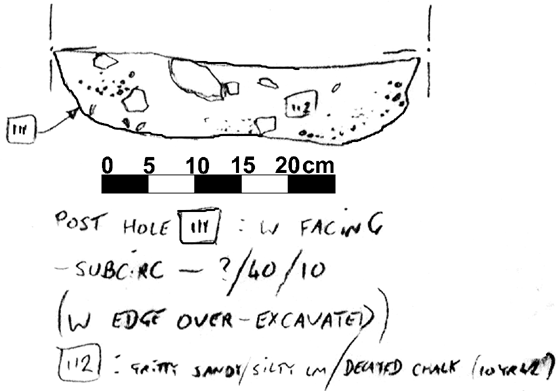 112
111
0 5 10 15 20cm
POST HOLE 111 : W FACING
-SUBCIRC - ?/40/10
(W EDGE OVER-EXCAVATED)
112 : GRITTY SANDY/SILTY LM/DECAYED CHALK